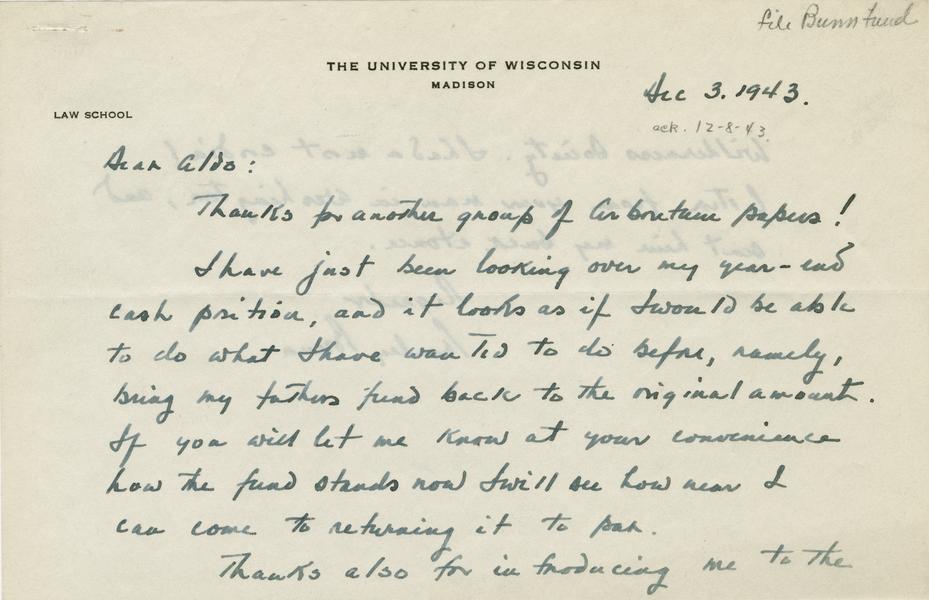 file Bunn Fund
THE UNIVERSITY OF WISCONSIN
MADISON
LAW SCHOOL
Dec 3. 1943.
ack. 12-8-43
Dear Aldo:
Thanks for another group of Arboretum papers!
I have just been looking over my year-end
cash position, and it looks as if I would be able
to do what I have wanted to do before, namely,
bring my fathers fund back to the original amount.
If you will let me know at your convenience
how the fund stands now I will see how near I
can come to returning it to par.
Thanks also for introducing me to the